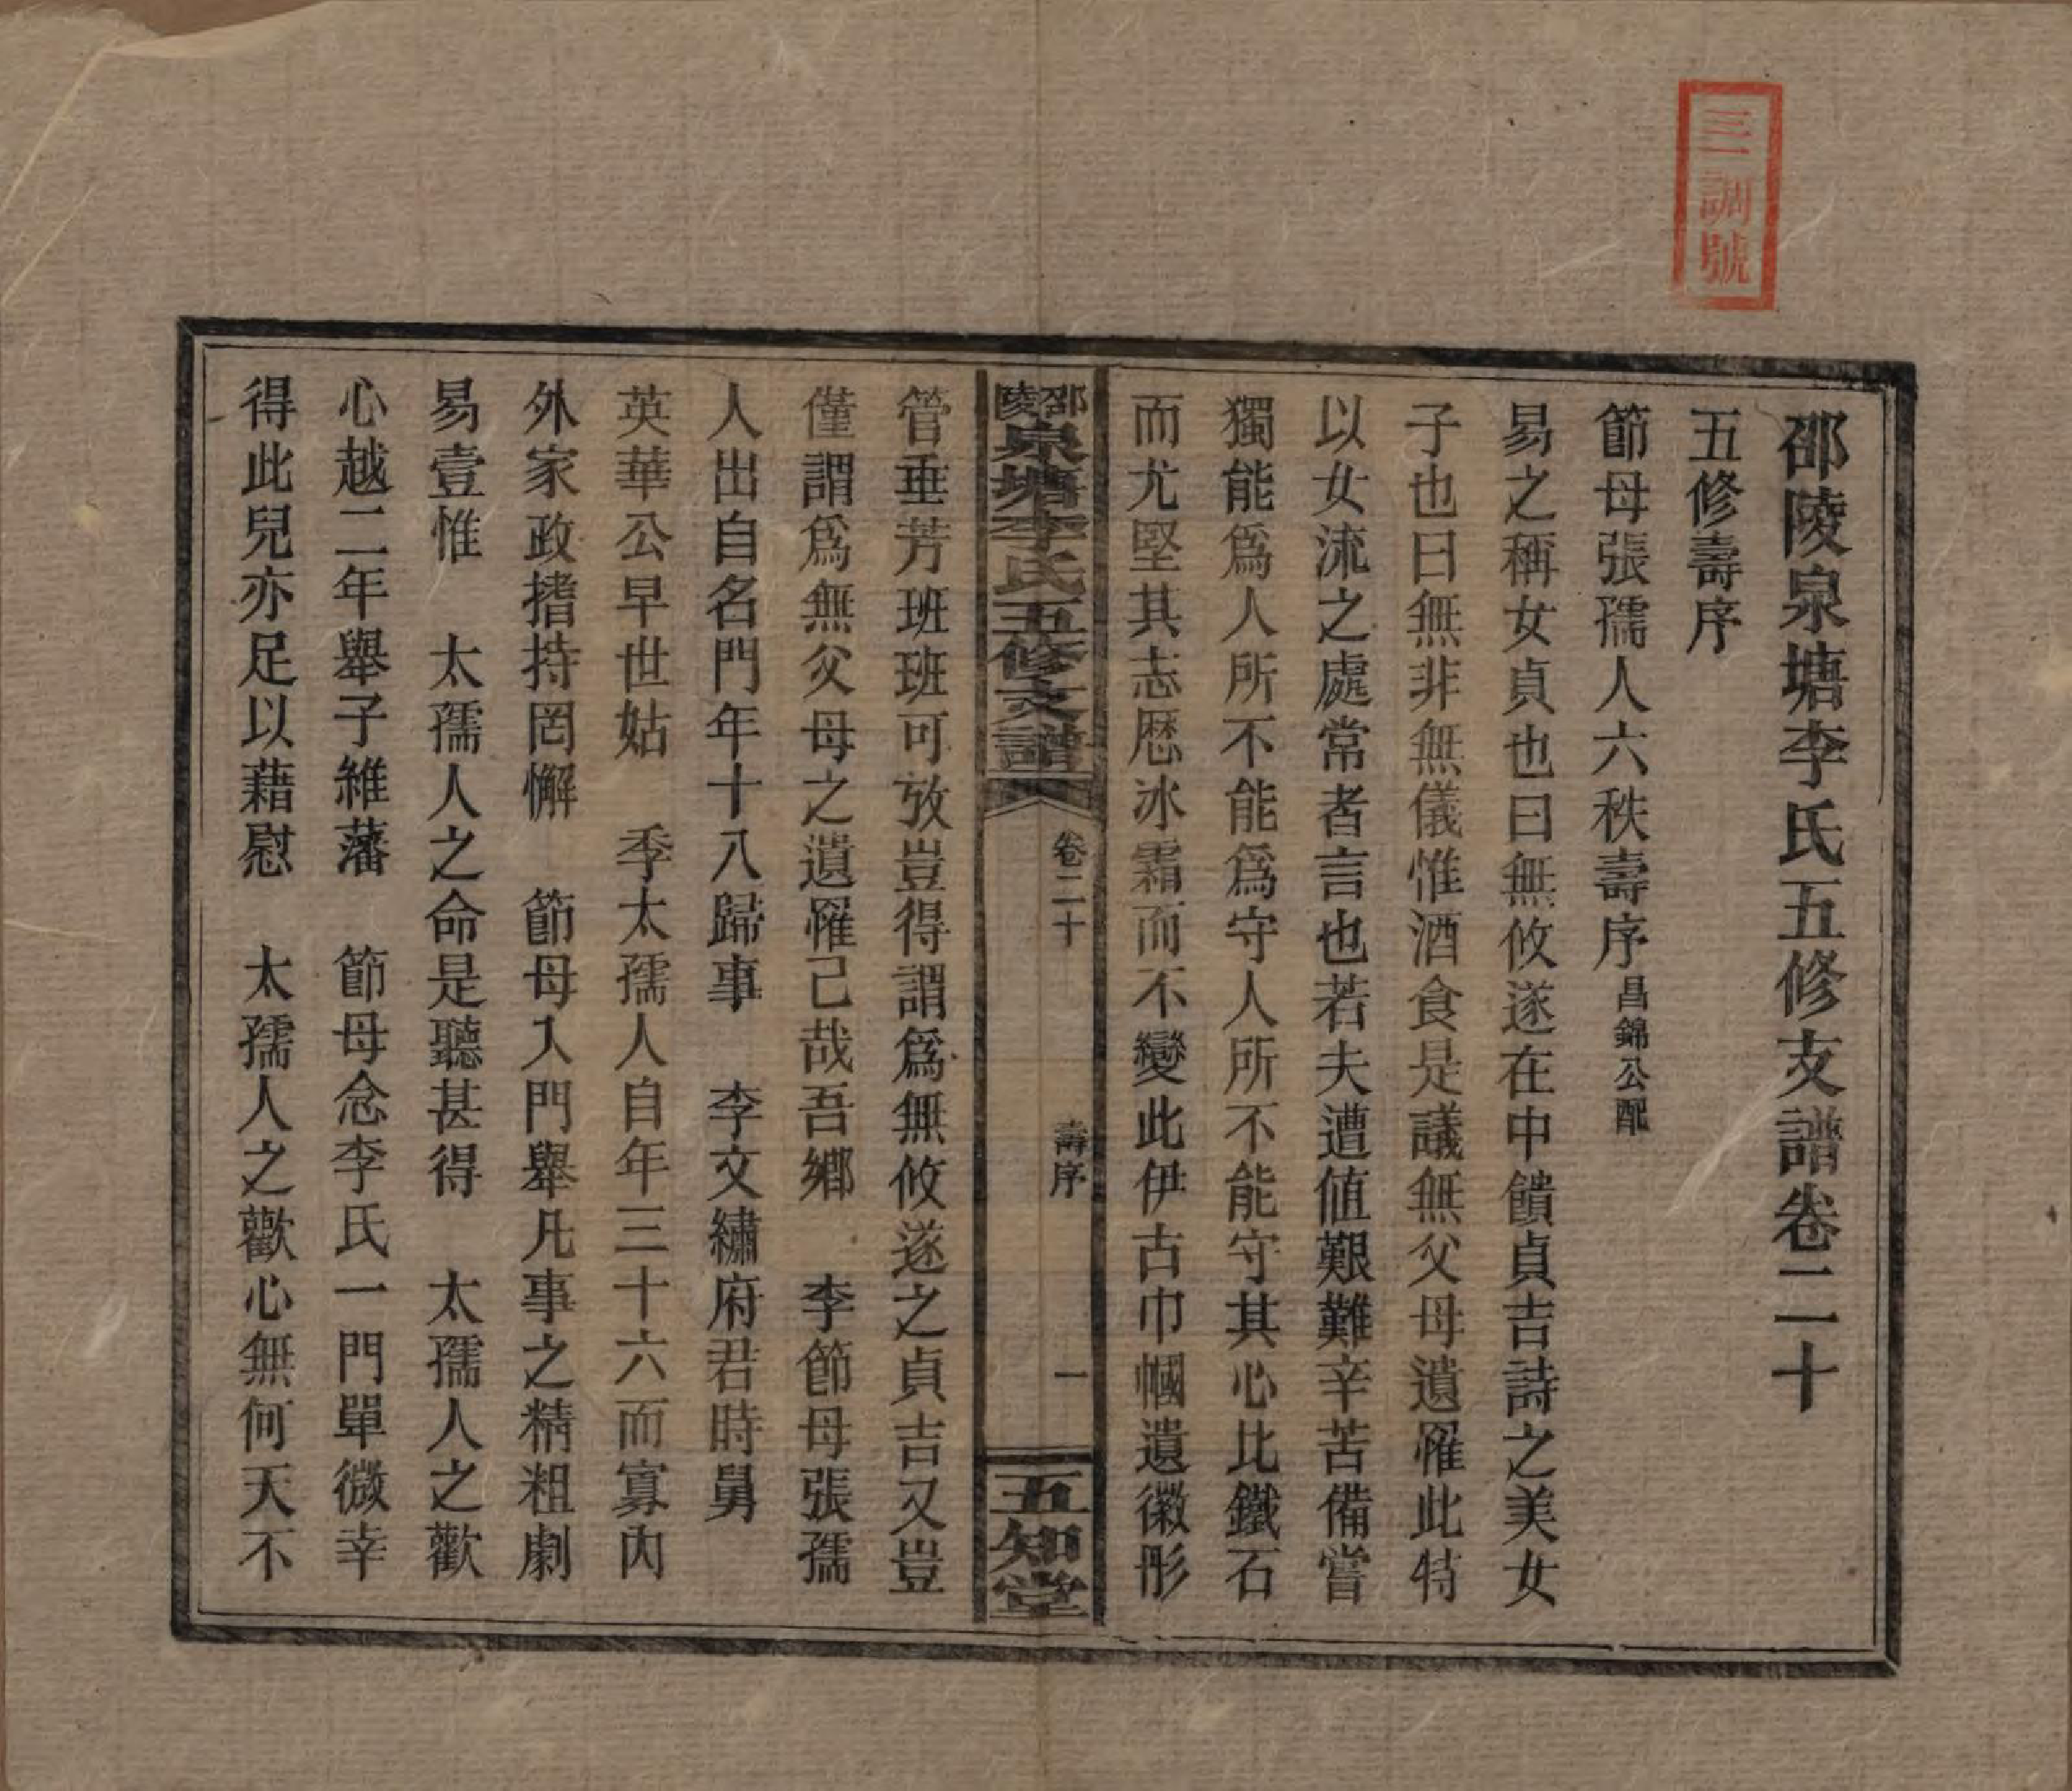 三一調號
邵陵泉塘李氏五修支譜卷二十
五修壽序
節母張孺人六秩壽序昌錦公配
易之稱女貞也曰無攸遂在中饋貞吉詩之美女
子也曰無非無儀惟酒食是議無父母遺罹此特
以女流之處常者言也若夫遭值艱難辛苦備嘗
獨能爲人所不能爲守人所不能守其心比鐵石
而尤堅其志歷冰霜而不變此伊古巾幗遺徽彤
邵陵泉塘李氏五修支譜
卷二十
壽序
一
五知堂
管垂芳班班可攷豈得謂爲無攸遂之貞吉又豈
僅謂爲無父母之遺罹己哉吾鄉 李節母張孺
人出自名門年十八歸事 李文繡府君時舅
英華公早世姑 季太孺人自年三十六而寡內
外家政搘持罔懈 節母入門舉凡事之精粗劇
易壹惟 太孺人之命是聽甚得 太孺人之歡
心越二年舉子維藩 節母念李氏一門單微幸
得此兒亦足以藉慰 太孺人之歡心無何天不